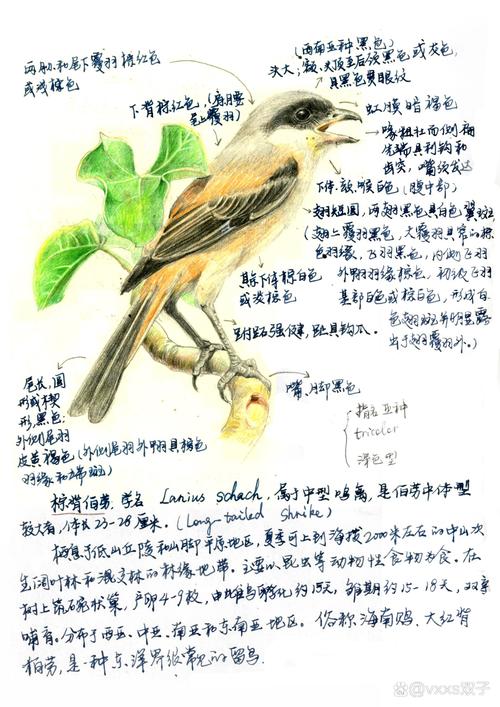 两胁和尾下覆羽棕红色
或浅棕色
(西南亚种黑色)
头大；额、头顶至后颈黑色或灰色，
具黑色贯眼纹
下背棕红色，(肩、腰
尾上覆羽)
虹膜暗褐色
喙粗壮而侧扁
先端具利钩和
齿突，嘴须发达
下体：颏、喉白色(腹中部)
翅短圆，两翅黑色具白色翼斑
(翅上覆羽黑色，大覆羽具窄的棕
色羽缘，飞羽黑色，内侧飞羽
外翈羽缘棕色，初级飞羽
基部白色或棕白色，形成白
色翅斑并明显露
出于翅覆羽外。)
其余下体棕白色
或淡棕色
跗跖强健，趾具钩爪。
嘴、脚黑色
尾长，圆
形或楔
形，黑色；
外侧尾羽
皮黄褐色(外侧尾羽外翈具棕色
羽缘和端斑)
指名亚种
tricolor
深色型
棕背伯劳，学名 Lanius schach，属于中型鸣禽，是伯劳中体型
较大者，体长23-28厘米。(Long-tailed Shrike)
栖息于低山丘陵和山脚平原地区，夏季可上到海拔2000米左右的中山次
生阔叶林和混交林的林缘地带。主要以昆虫等动物性食物为食。在
树上筑碗状巢，产卵4-9枚，由雌鸟孵化约15天，雏期约15-18天，双亲
哺育。分布于西亚、中亚、南亚和东南亚地区。俗称海南鵙、大红背
伯劳，是一种东洋界级常见的留鸟.
@vxxs双子